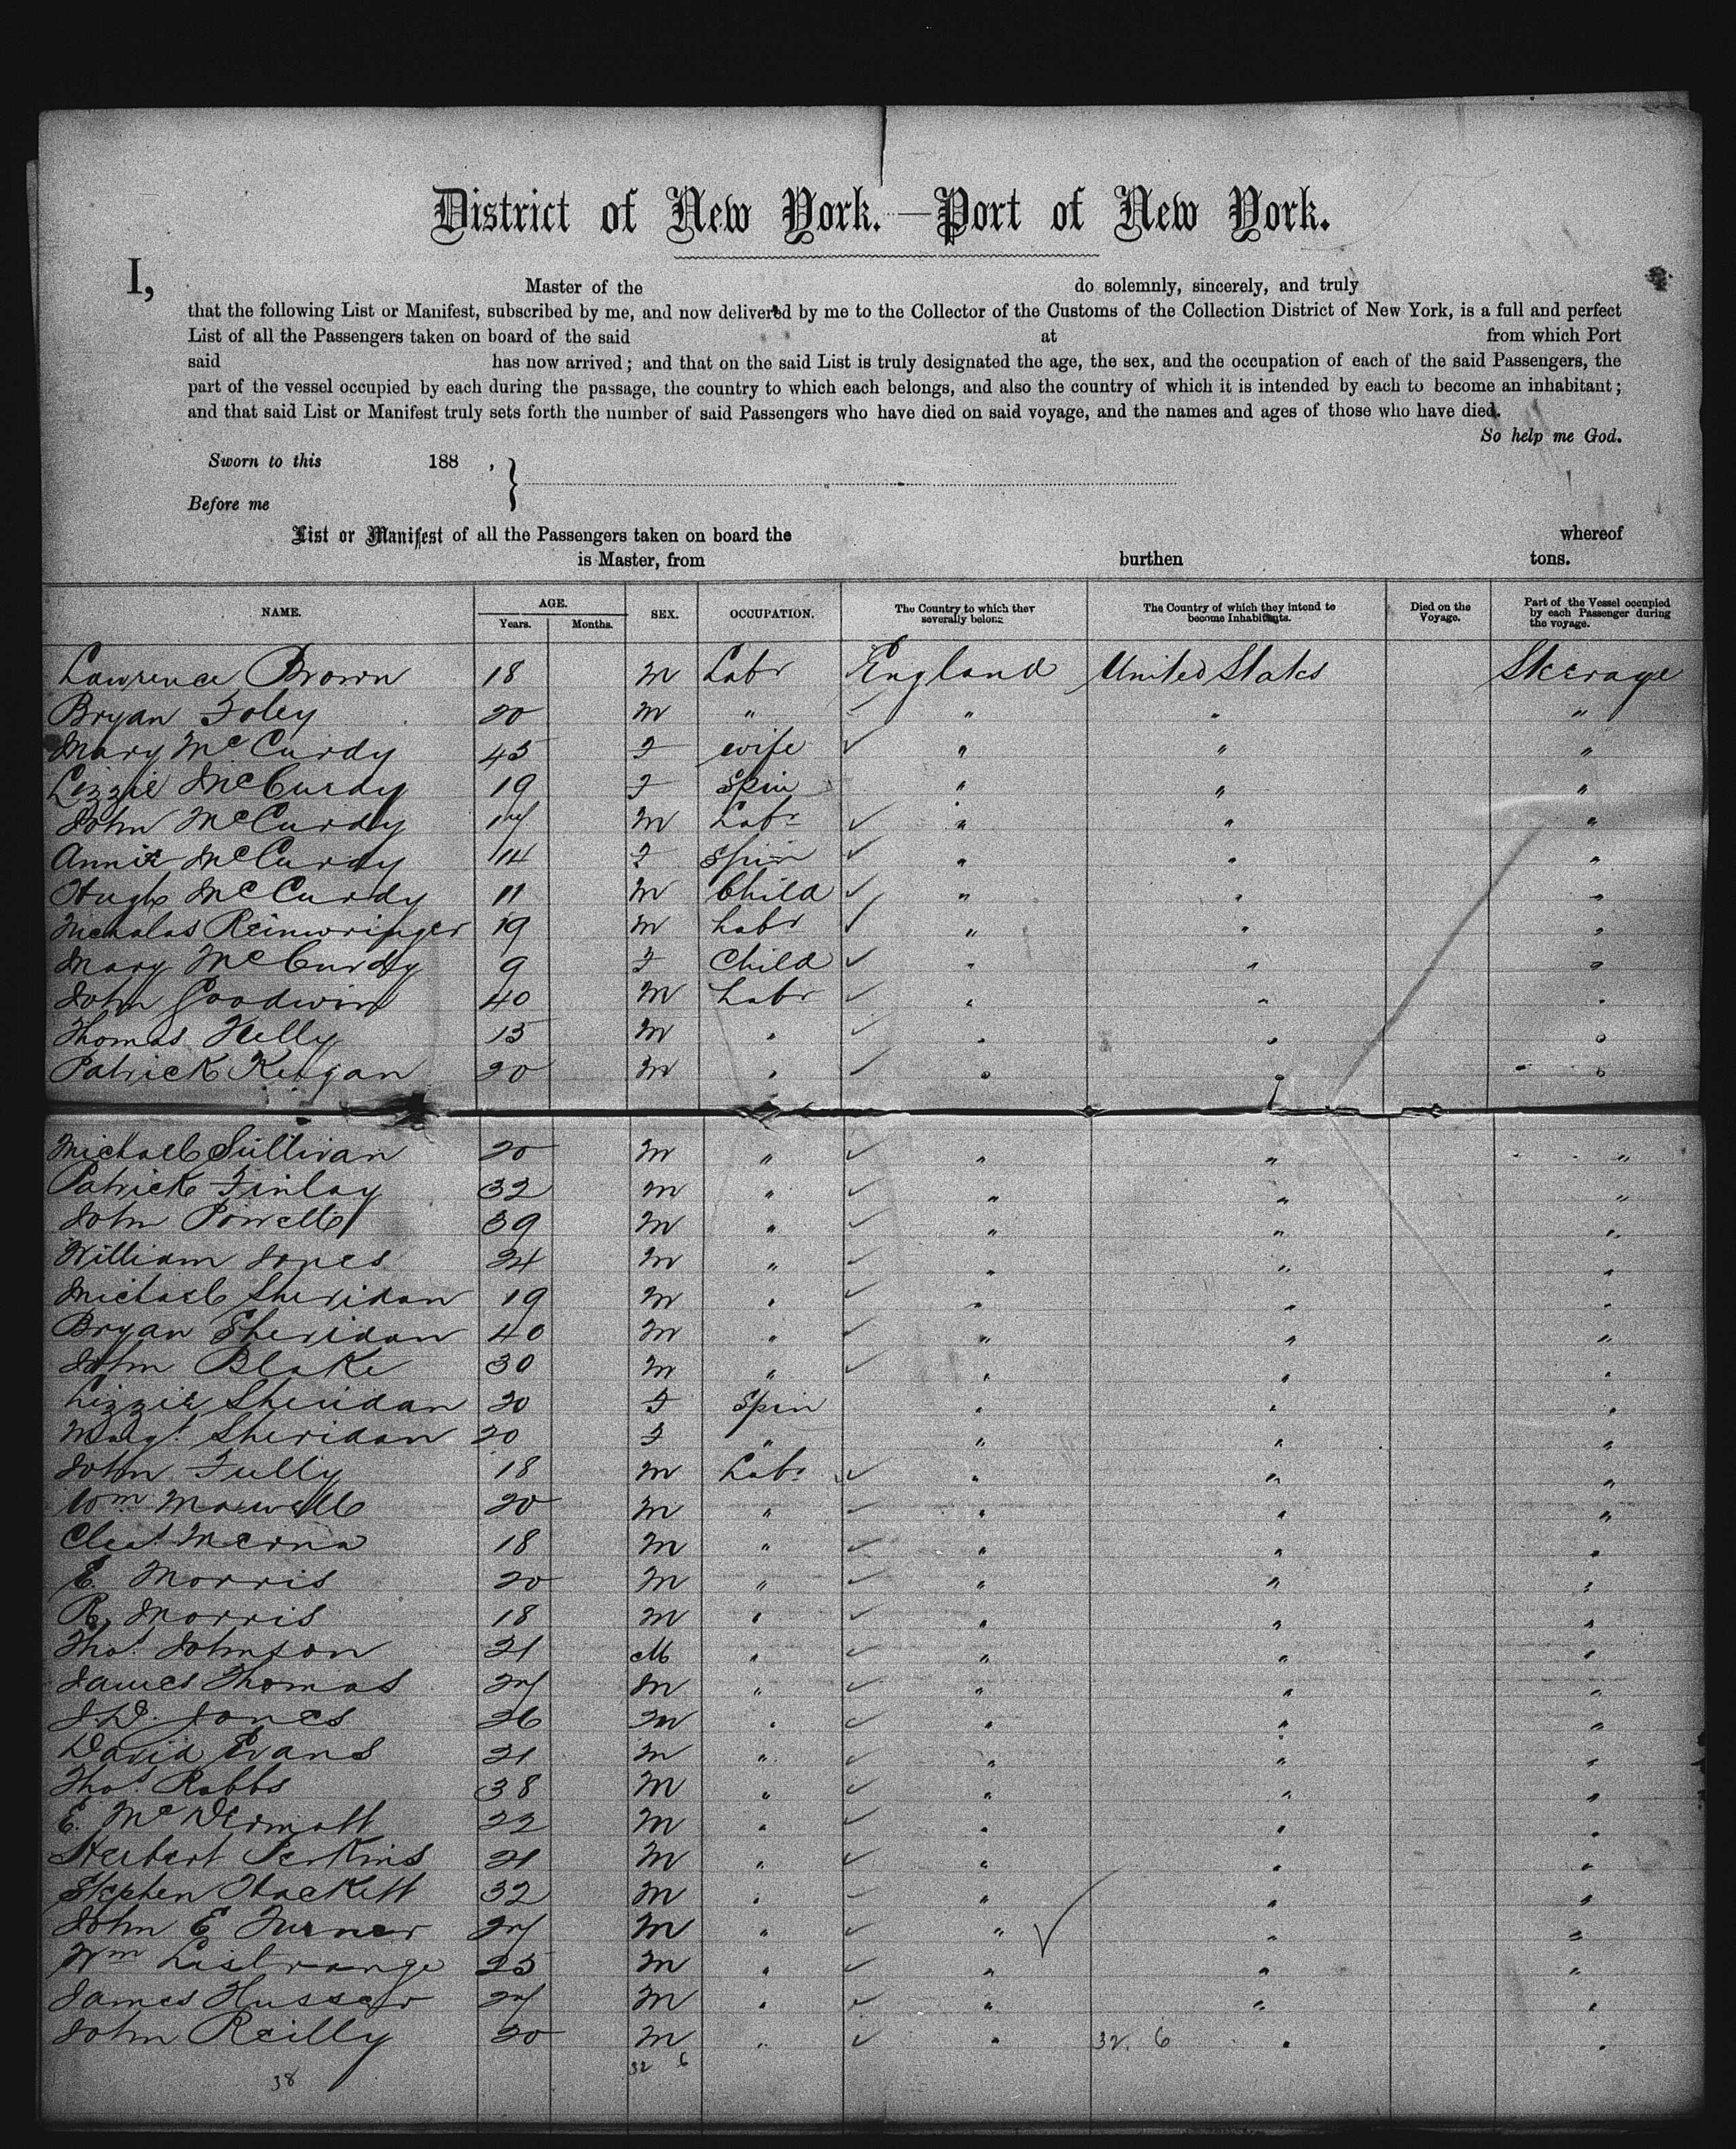 District of New York.—Port of New York.
I, Master of the do solemnly, sincerely, and truly
that the following List or Manifest, subscribed by me, and now delivered by me to the Collector of the Customs of the Collection District of New York, is a full and perfect
List of all the Passengers taken on board of the said at from which Port
said has now arrived; and that on the said List is truly designated the age, the sex, and the occupation of each of the said Passengers, the
part of the vessel occupied by each during the passage, the country to which each belongs, and also the country of which it is intended by each to become an inhabitant;
and that said List or Manifest truly sets forth the number of said Passengers who have died on said voyage, and the names and ages of those who have died.
So help me God.
Sworn to this 188 ,
Before me
List or Manifest of all the Passengers taken on board the whereof
is Master, from burthen tons.
NAME. AGE. Years. Months. SEX. OCCUPATION. The Country to which they severally belong The Country of which they intend to become Inhabitants. Died on the Voyage. Part of the Vessel occupied by each Passenger during the voyage.
Lawrence Brown 18 M Labr England United States Steerage
Bryan Foley 20 M " " " "
Mary McCurdy 45 F wife " " "
Lizzie McCurdy 19 F Spin " " "
John McCurdy 17 M Labr " " "
Annie McCurdy 14 F Spin " " "
Hugh McCurdy 11 M Child " " "
Nicholas Reinwringer 19 M Labr " " "
Mary McCurdy 9 F Child " " "
John Goodwin 40 M Labr " " "
Thomas 15 M " " " "
Patrick Keegan 20 M " " " "
Michael Sullivan 20 M " " " "
Patrick Finlay 32 M " " " "
John Powell 39 M " " " "
William Jones 24 M " " " "
Michael Sheridan 19 M " " " "
Bryan Sheridan 40 M " " " "
John Blake 30 M " " " "
Lizzie Sheridan 20 F Spin " " "
Margt Sheridan 20 F " " " "
John Tully 18 M Labr " " "
Wm 20 M " " " "
18 M " " " "
E. Morris 20 M " " " "
R. Morris 18 M " " " "
Thos Johnson 21 M " " " "
James Thomas 27 M " " " "
J.D. Jones 26 M " " " "
David Evans 21 M " " " "
Thos Robbs 38 M " " " "
E. McDermott 22 M " " " "
Herbert Perkins 21 M " " " "
Stephen Hackett 32 M " " " "
John E Turner 27 M " " " "
Wm Lestrange 25 M " " " "
James 27 M " " " "
John Reilly 20 M " " 32. 6 " "
38 32 6